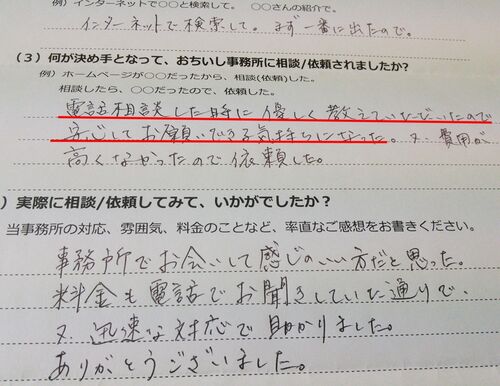 例）インターネットで○○と検索して。　○○さんの紹介で。
インターネットで検索して。まず一番に出たので。
（3）何が決め手となって、おちいし事務所に相談/依頼されましたか?
例）ホームページが○○だったから、相談(依頼)した。
相談したら、○○だったので、依頼した。
電話相談した時に優しく教えていただいたので
安心してお願いできる気持ちになった。又、費用が
高くなかったので依頼した。
）実際に相談/依頼してみて、いかがでしたか？
当事務所の対応、雰囲気、料金のことなど、率直なご感想をお書きください。
事務所でお会いして感じのいい方だと思った。
料金も電話でお聞きしていた通りで、
又、迅速な対応で助かりました。
ありがとうございました。